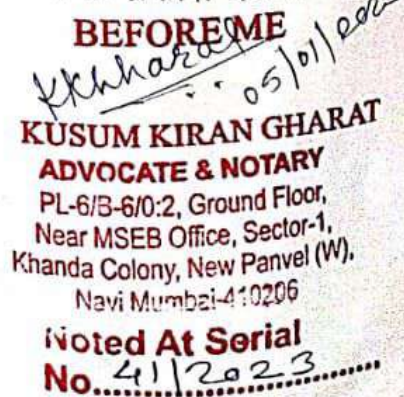 BEFORE ME
05/01/202
KUSUM KIRAN GHARAT
ADVOCATE & NOTARY
PL-6/B-6/0:2, Ground Floor,
Near MSEB Office, Sector-1,
Khanda Colony, New Panvel (W),
Navi Mumbai-410206
Noted At Serial
No...41/2023